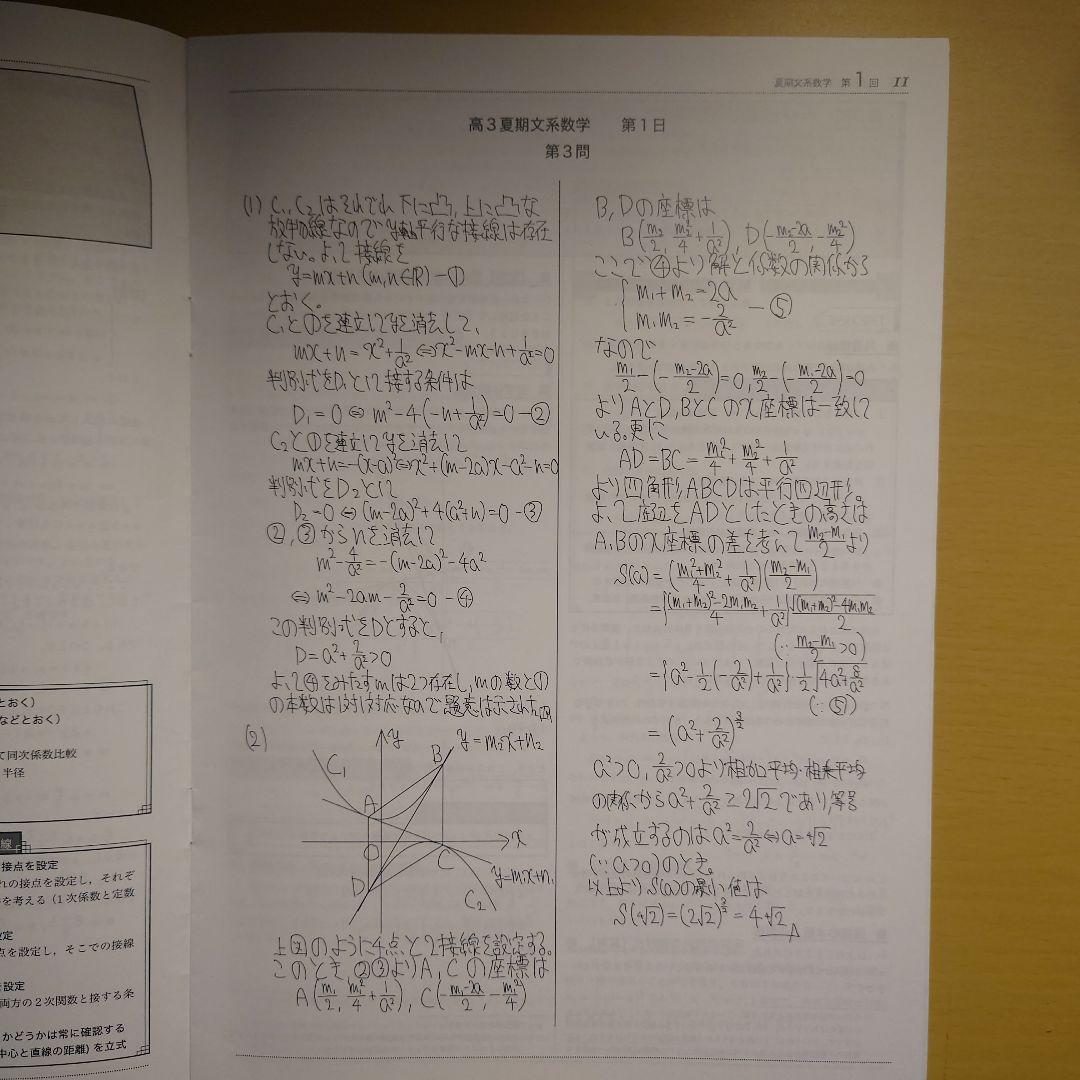 夏期文系数学 第1回 11
高3夏期文系数学 第1日
第3問
(1) C₁, C₂はそれぞれ下に凸, 上に凸な
放物線なのでy軸平行な接線は存在
しない。よって接線を
y=mx+n (m,n∈ℝ) −①
とおく。
C₁と①を連立してyを消去して、
mx+n=x²+1/a² ⇔ x²−mx−n+1/a²=0
判別式をD₁として接する条件は
D₁=0 ⇔ m²−4(−n+1/a²)=0 −②
C₂と①を連立してyを消去して
mx+n=−(x−a)² ⇔ x²+(m−2a)x−a²−n=0
判別式をD₂として
D₂=0 ⇔ (m−2a)²+4(a²+n)=0 −③
②,③からnを消去して
m²−4/a²=−(m−2a)²−4a²
⇔ m²−2am−2/a²=0 −④
この判別式をDとすると,
D=a²+2/a²>0
よって④をみたすmは2つ存在し, mの数と①
の本数は1対1対応なので題意は示された
(2)
y
y=m₂x+n₂
C₁
B
A
x
O
C
y=m₁x+n₁
D
C₂
上図のように4点と2接線を設定する。
このとき,②③よりA, Cの座標は
A(m₁/2, m₁²/4+1/a²), C(−(m₁−2a)/2, −m₁²/4)
B, Dの座標は、
B(m₂/2, m₂²/4+1/a²), D(−(m₂−2a)/2, −m₂²/4)
ここで④より解と係数の関係から
{m₁+m₂=2a
m₁m₂=−2/a² −⑤
なので
m₁/2−(−(m₂−2a)/2)=0, m₂/2−(−(m₁−2a)/2)=0
よりAとD, BとCのx座標は一致して
いる。更に
AD=BC=m₁²/4+m₂²/4+1/a²
より四角形ABCDは平行四辺形。
よって底辺をADとしたときの高さは
A,Bのx座標の差を考えて(m₂−m₁)/2より
S(a)=((m₁²+m₂²)/4+1/a²)((m₂−m₁)/2)
={((m₁+m₂)²−2m₁m₂)/4+1/a²}√((m₁+m₂)²−4m₁m₂)/2
(∵ (m₂−m₁)/2>0)
={a²−1/2(−2/a²)+1/a²}・1/2√(4a²+8/a²)
(∵⑤)
=(a²+2/a²)^(3/2)
a²>0, 2/a²>0より相加平均・相乗平均
の関係からa²+2/a²≧2√2であり,等号
が成立するのはa²=2/a² ⇔ a=⁴√2
(∵a>0)のとき。
以上よりS(a)の最小値は
S(⁴√2)=(2√2)^(3/2)=4⁴√2
とおく)
などとおく)
て同次係数比較
半径
線
接点を設定
れの接点を設定し, それぞ
を考える (1次係数と定数
定
点を設定し, そこでの接線
を設定
両方の2次関数と接する条
かどうかは常に確認する
中心と直線の距離) を立式